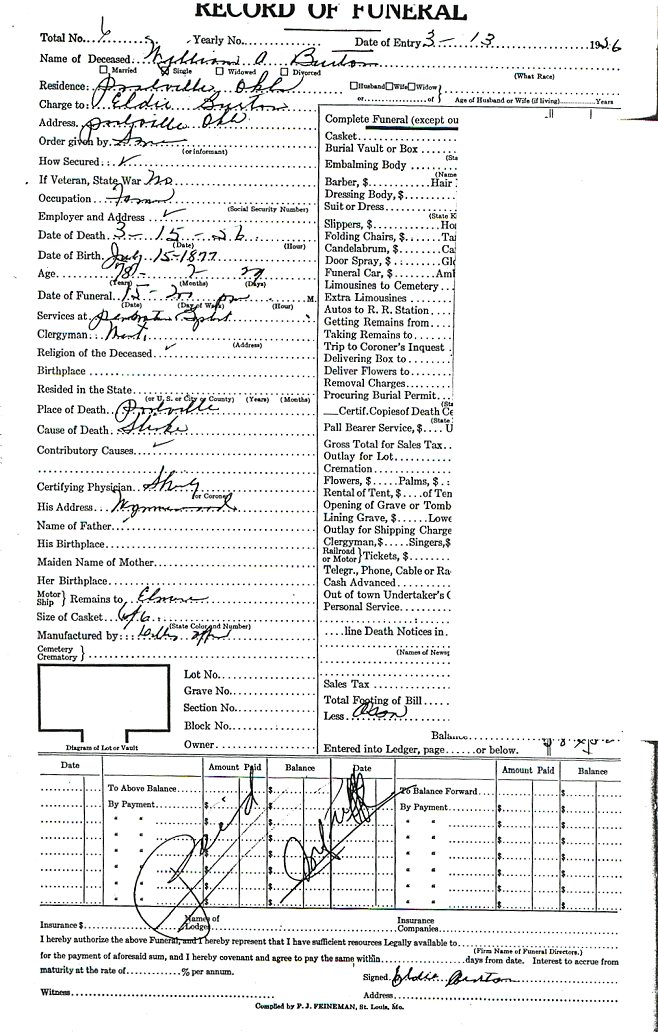 RECORD OF FUNERAL
Total No. 6 Yearly No. Date of Entry 3-13 1956
Name of Deceased William A. Burton
Married Single Widowed Divorced (What Race)
Residence: Okla Husband Wife Widow
or of Age of Husband or Wife (if living) Years
Charge to: Eldie Burton
Address Okl
Order given by Same
(or informant)
How Secured
If Veteran, State War No
Occupation
(Social Security Number)
Employer and Address
Date of Death 3-15-56
(Date) (Hour)
Date of Birth July 15-1877
Age 78 7 29
(Years) (Months) (Days)
Date of Funeral 15- pm M.
(Date) (Day of Week) (Hour)
Services at
Clergyman
(Address)
Religion of the Deceased
Birthplace
Resided in the State
(or U. S. or City or County) (Years) (Months)
Place of Death
Cause of Death Stroke
Contributory Causes
Certifying Physician
(or Coroner)
His Address Wynnewood
Name of Father
His Birthplace
Maiden Name of Mother
Her Birthplace
Motor Ship } Remains to Elmore
Size of Casket 6/6
(State Color and Number)
Manufactured by
Cemetery
Crematory }
Diagram of Lot or Vault
Lot No.
Grave No.
Section No.
Block No.
Owner
Complete Funeral (except ou
Casket
Burial Vault or Box
(Sta
Embalming Body
(Name
Barber, $ Hair
Dressing Body, $
Suit or Dress
(State K
Slippers, $ Ho
Folding Chairs, $ Ta
Candelabrum, $ Ca
Door Spray, $ Glo
Funeral Car, $ Aml
Limousines to Cemetery
Extra Limousines
Autos to R. R. Station
Getting Remains from
Taking Remains to
Trip to Coroner's Inquest
Delivering Box to
Deliver Flowers to
Removal Charges
Procuring Burial Permit
(Sta
Certif. Copies of Death Ce
(State
Pall Bearer Service, $ U
Gross Total for Sales Tax
Outlay for Lot
Cremation
Flowers, $ Palms, $
Rental of Tent, $ of Ten
Opening of Grave or Tomb
Lining Grave, $ Lowe
Outlay for Shipping Charge
Clergyman, $ Singers, $
Railroad or Motor } Tickets, $
Telegr., Phone, Cable or Ra
Cash Advanced
Out of town Undertaker's C
Personal Service
line Death Notices in
(Names of Newsp
Sales Tax
Total Footing of Bill
Less
Balance
Entered into Ledger, page or below.
Date Amount Paid Balance Date Amount Paid Balance
To Above Balance $ To Balance Forward $
By Payment $ By Payment $
Paid
Insurance $ Names of Lodges Insurance Companies
I hereby authorize the above Funeral, and I hereby represent that I have sufficient resources Legally available to
(Firm Name of Funeral Directors.)
for the payment of aforesaid sum, and I hereby covenant and agree to pay the same within days from date. Interest to accrue from
maturity at the rate of % per annum. Signed Eldie Burton
Witness Address
Compiled by F. J. FEINEMAN, St. Louis, Mo.